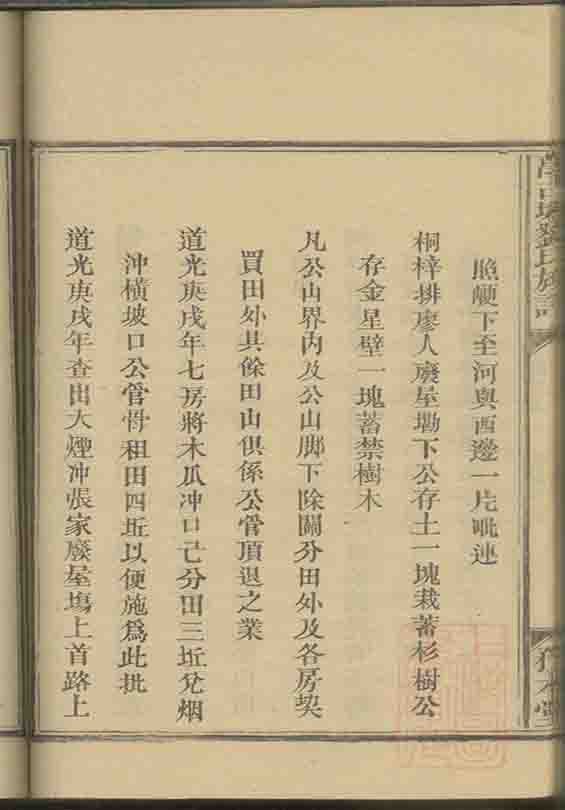 照㽟下至河與西邊一片毗連
桐梓排廖人廢屋墈下公存土一塊栽蓄杉樹公
存金星壁一塊蓄禁樹木
凡公山界內及公山腳下除鬮分田外及各房契
買田外其餘田山俱係公管頂退之業
道光庚戌年七房將木瓜冲口己分田三坵兌烟
沖橫坡口公管骨租田四坵以便施爲此批
道光庚戌年查出大煙冲張家廢屋塲上首路上
劉氏族譜